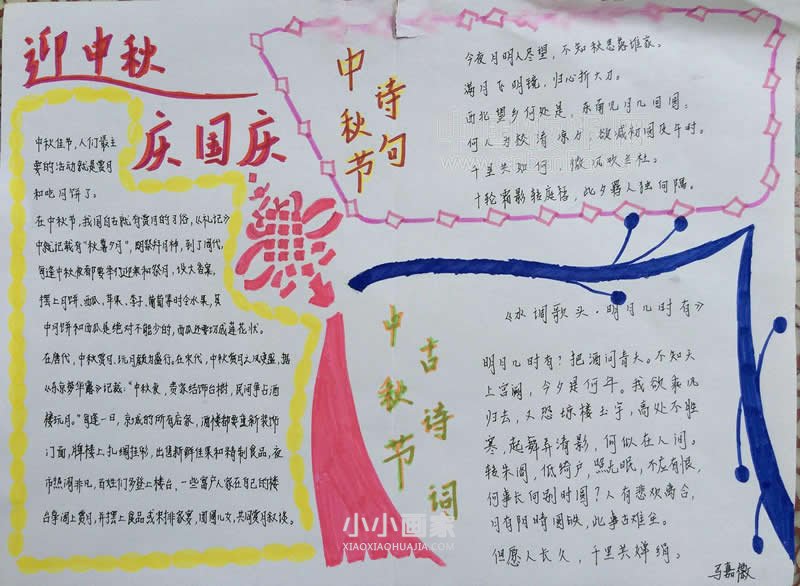 迎中秋
庆国庆
中秋佳节,人们最主
要的活动就是赏月
和吃月饼了。
在中秋节,我国自古就有赏月的习俗,《礼记》
中就记载有"秋暮夕月",即祭拜月神,到了周代,
每逢中秋夜都要举行迎寒和祭月,设大香案,
摆上月饼、西瓜、苹果、李子、葡萄等时令水果,其
中月饼和西瓜是绝对不能少的,西瓜还要切成莲花状。
在唐代,中秋赏月、玩月颇为盛行。在宋代,中秋赏月之风更盛,据
《东京梦华录》记载:"中秋夜,贵家结饰台榭,民间争占酒
楼玩月。"每逢一日,京城的所有店家,酒楼都要重新装饰
门面,牌楼上扎绸挂彩,出售新鲜佳果和精制食品,夜
市热闹非凡,百姓们多登上楼台,一些富户人家在自己的楼
台亭阁上赏月,并摆上食品或安排家宴,团圆儿女,共同赏月叙谈。
中秋节
诗句
今夜月明人尽望,不知秋思落谁家。
满月飞明镜,归心折大刀。
西北望乡何处是,东南见月几回圆。
何人为校清凉力,欲减初圆及午时。
千里共如何,微风吹兰杜。
十轮霜影转庭梧,此夕羁人独向隅。
中秋节
古诗词
《水调歌头·明月几时有》
明月几时有?把酒问青天。不知天
上宫阙,今夕是何年。我欲乘风
归去,又恐琼楼玉宇,高处不胜
寒,起舞弄清影,何似在人间。
转朱阁,低绮户,照无眠,不应有恨,
何事长向别时圆?人有悲欢离合,
月有阴晴圆缺,此事古难全。
但愿人长久,千里共婵娟。
马嘉徽
小小画家
XIAOXIAOHUAJIA.COM